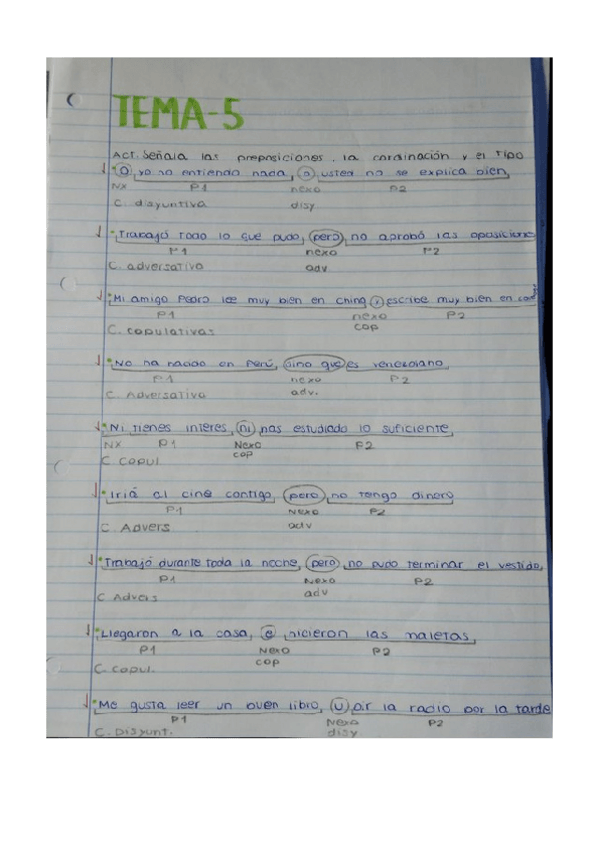 TEMA-5
Act. Señala las preposiciones, la cordinación y el tipo
O yo no entiendo nada, o usted no se explica bien,
NX P1 nexo P2
C. disyuntiva disy
Trabajó todo lo que pudo, pero, no aprobó las oposiciones
P1 nexo P2
C. adversativa adv
Mi amigo Pedro lee muy bien en ching, y escribe muy bien en
P1 nexo P2
C. copulativas cop
No ha nacido en Perú, sino que es venezolano,
P1 nexo P2
C. Adversativa adv.
Ni tienes interes, ni has estudiado lo suficiente,
NX P1 Nexo P2
C. Copul. cop
Iría al cine contigo, pero, no tengo dinero
P1 Nexo P2
C. Advers adv
Trabajó durante toda la noche, pero, no pudo terminar el vestido,
P1 Nexo P2
C Advers adv
Llegaron a la casa, e hicieron las maletas,
P1 Nexo P2
C. Copul. cop
Me gusta leer un buen libro, u oir la radio por la tarde
P1 Nexo P2
C. Disyunt. disy